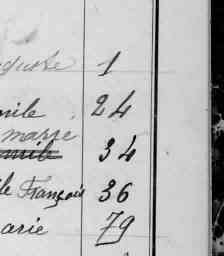 guste 1
mile 24
marre
mile 34
ile François 36
arie 79